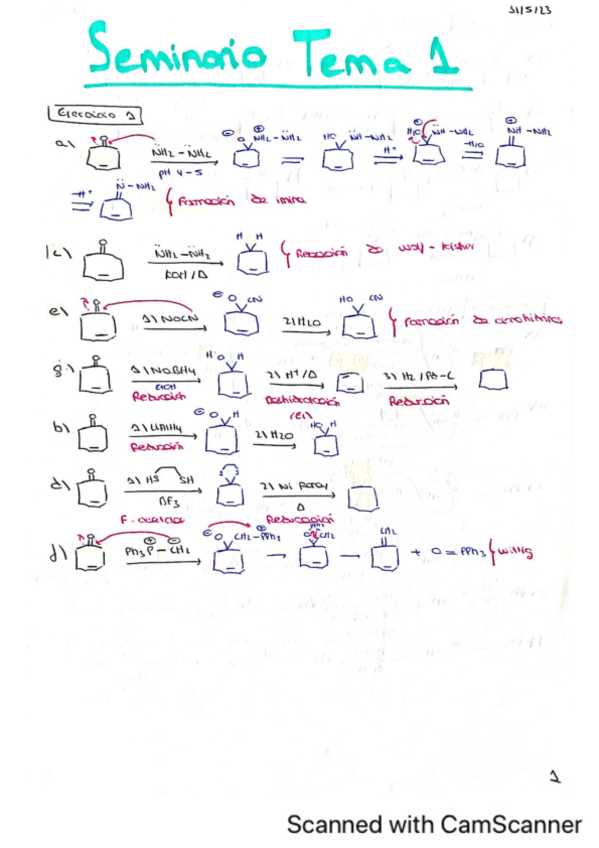 31/5/23
Seminario Tema 1
Ejercicio 1
a) O N̈H2 - N̈H2 pH 4-5 ⊖ O ⊕ NH2 - N̈H2 HO N̈H - NH2 H+ H2O ⊕ N̈H - NH2 -H2O ⊕ NH - NH2
-H+ N̈ - NH2 Formación de imina
c) O N̈H2 - N̈H2 KOH / Δ H H Reacción de Wolf - Kishner
e) O 1) NaCN ⊖ O CN 2) H2O HO CN Formación de cianohidrinas
g) O 1) NaBH4 EtOH Reducción H O H 2) H+ / Δ Deshidratación (E1) 3) H2 / Pd - C Reducción
b) O 1) LiAlH4 Reducción ⊖ O H 2) H2O HO H
d) O 1) HS SH BF3 F. acetales S S 2) Ni Raney Δ Reducción
f) O Ph3 P ⊕ - ⊖ CH2 ⊖ O CH2 - ⊕ PPh3 O CH2 CH2 + O = PPh3 Wittig
1
Scanned with CamScanner